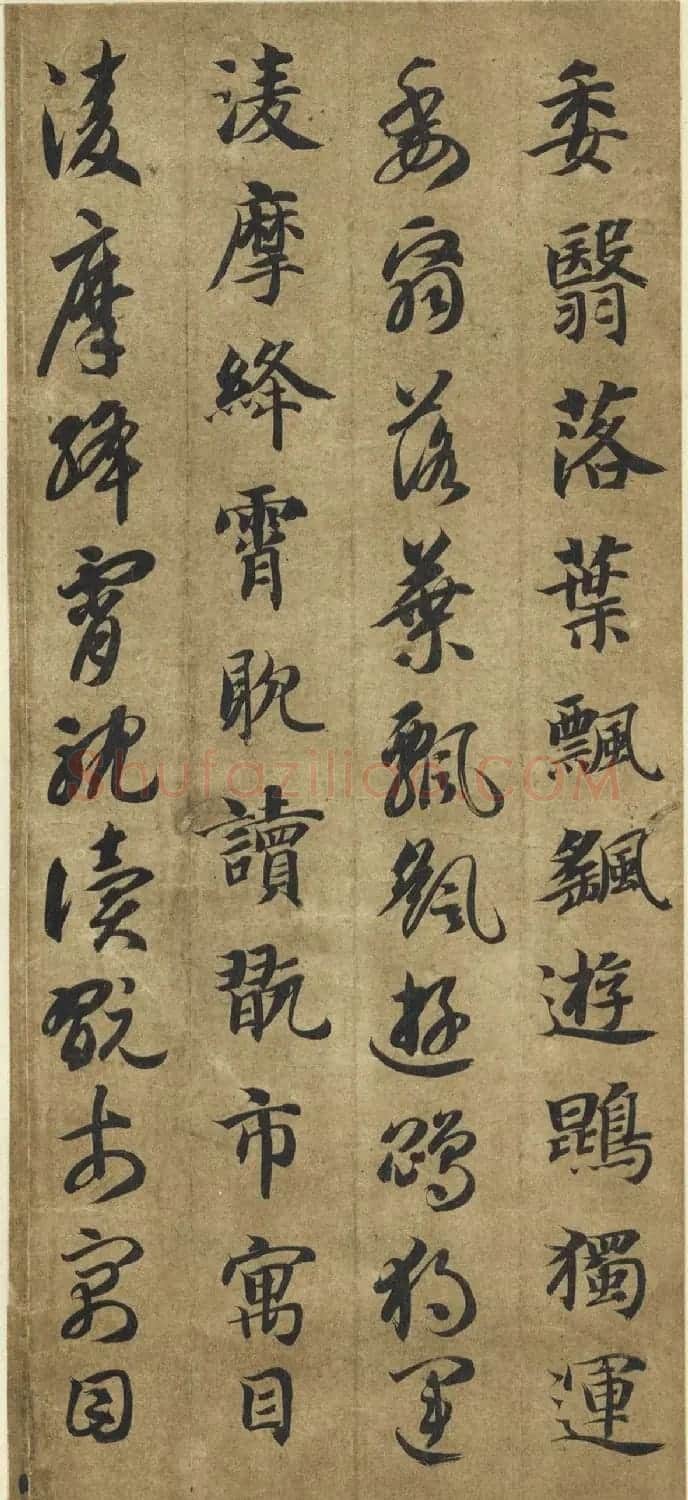 委翳落葉飄颻遊鵾獨運
委翳落葉飄颻遊鵾獨運
淩摩絳霄耽讀翫市寓目
淩摩絳霄耽讀翫市寓目
Shufaziliao.COM